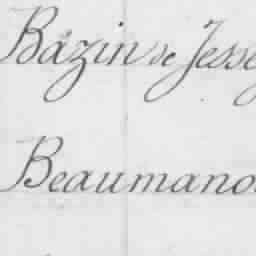 Bazin de Jesse
Beaumano